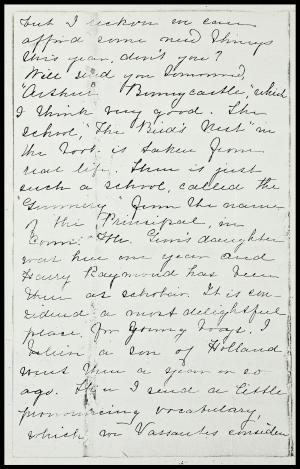 but I reckon we can
afford some new things
this year, don't you?
Will send you tomorrow,
"Arthur Bonnycastle," which
I think very good. The
school, "The Bird's Nest" in
the book is taken from
real life. There is just
such a school, called the
"Gunnery" from the name
of the Principal, in
Conn. Mr. Gunn's daughter
was here one year and
Harry Raymond has been
there as scholar. It is con-
sidered a most delightful
place for young boys. I
believe a son of Holland
went there a year or so
ago. Then I send a little
pronouncing vocabulary,
which we Vassarites consider